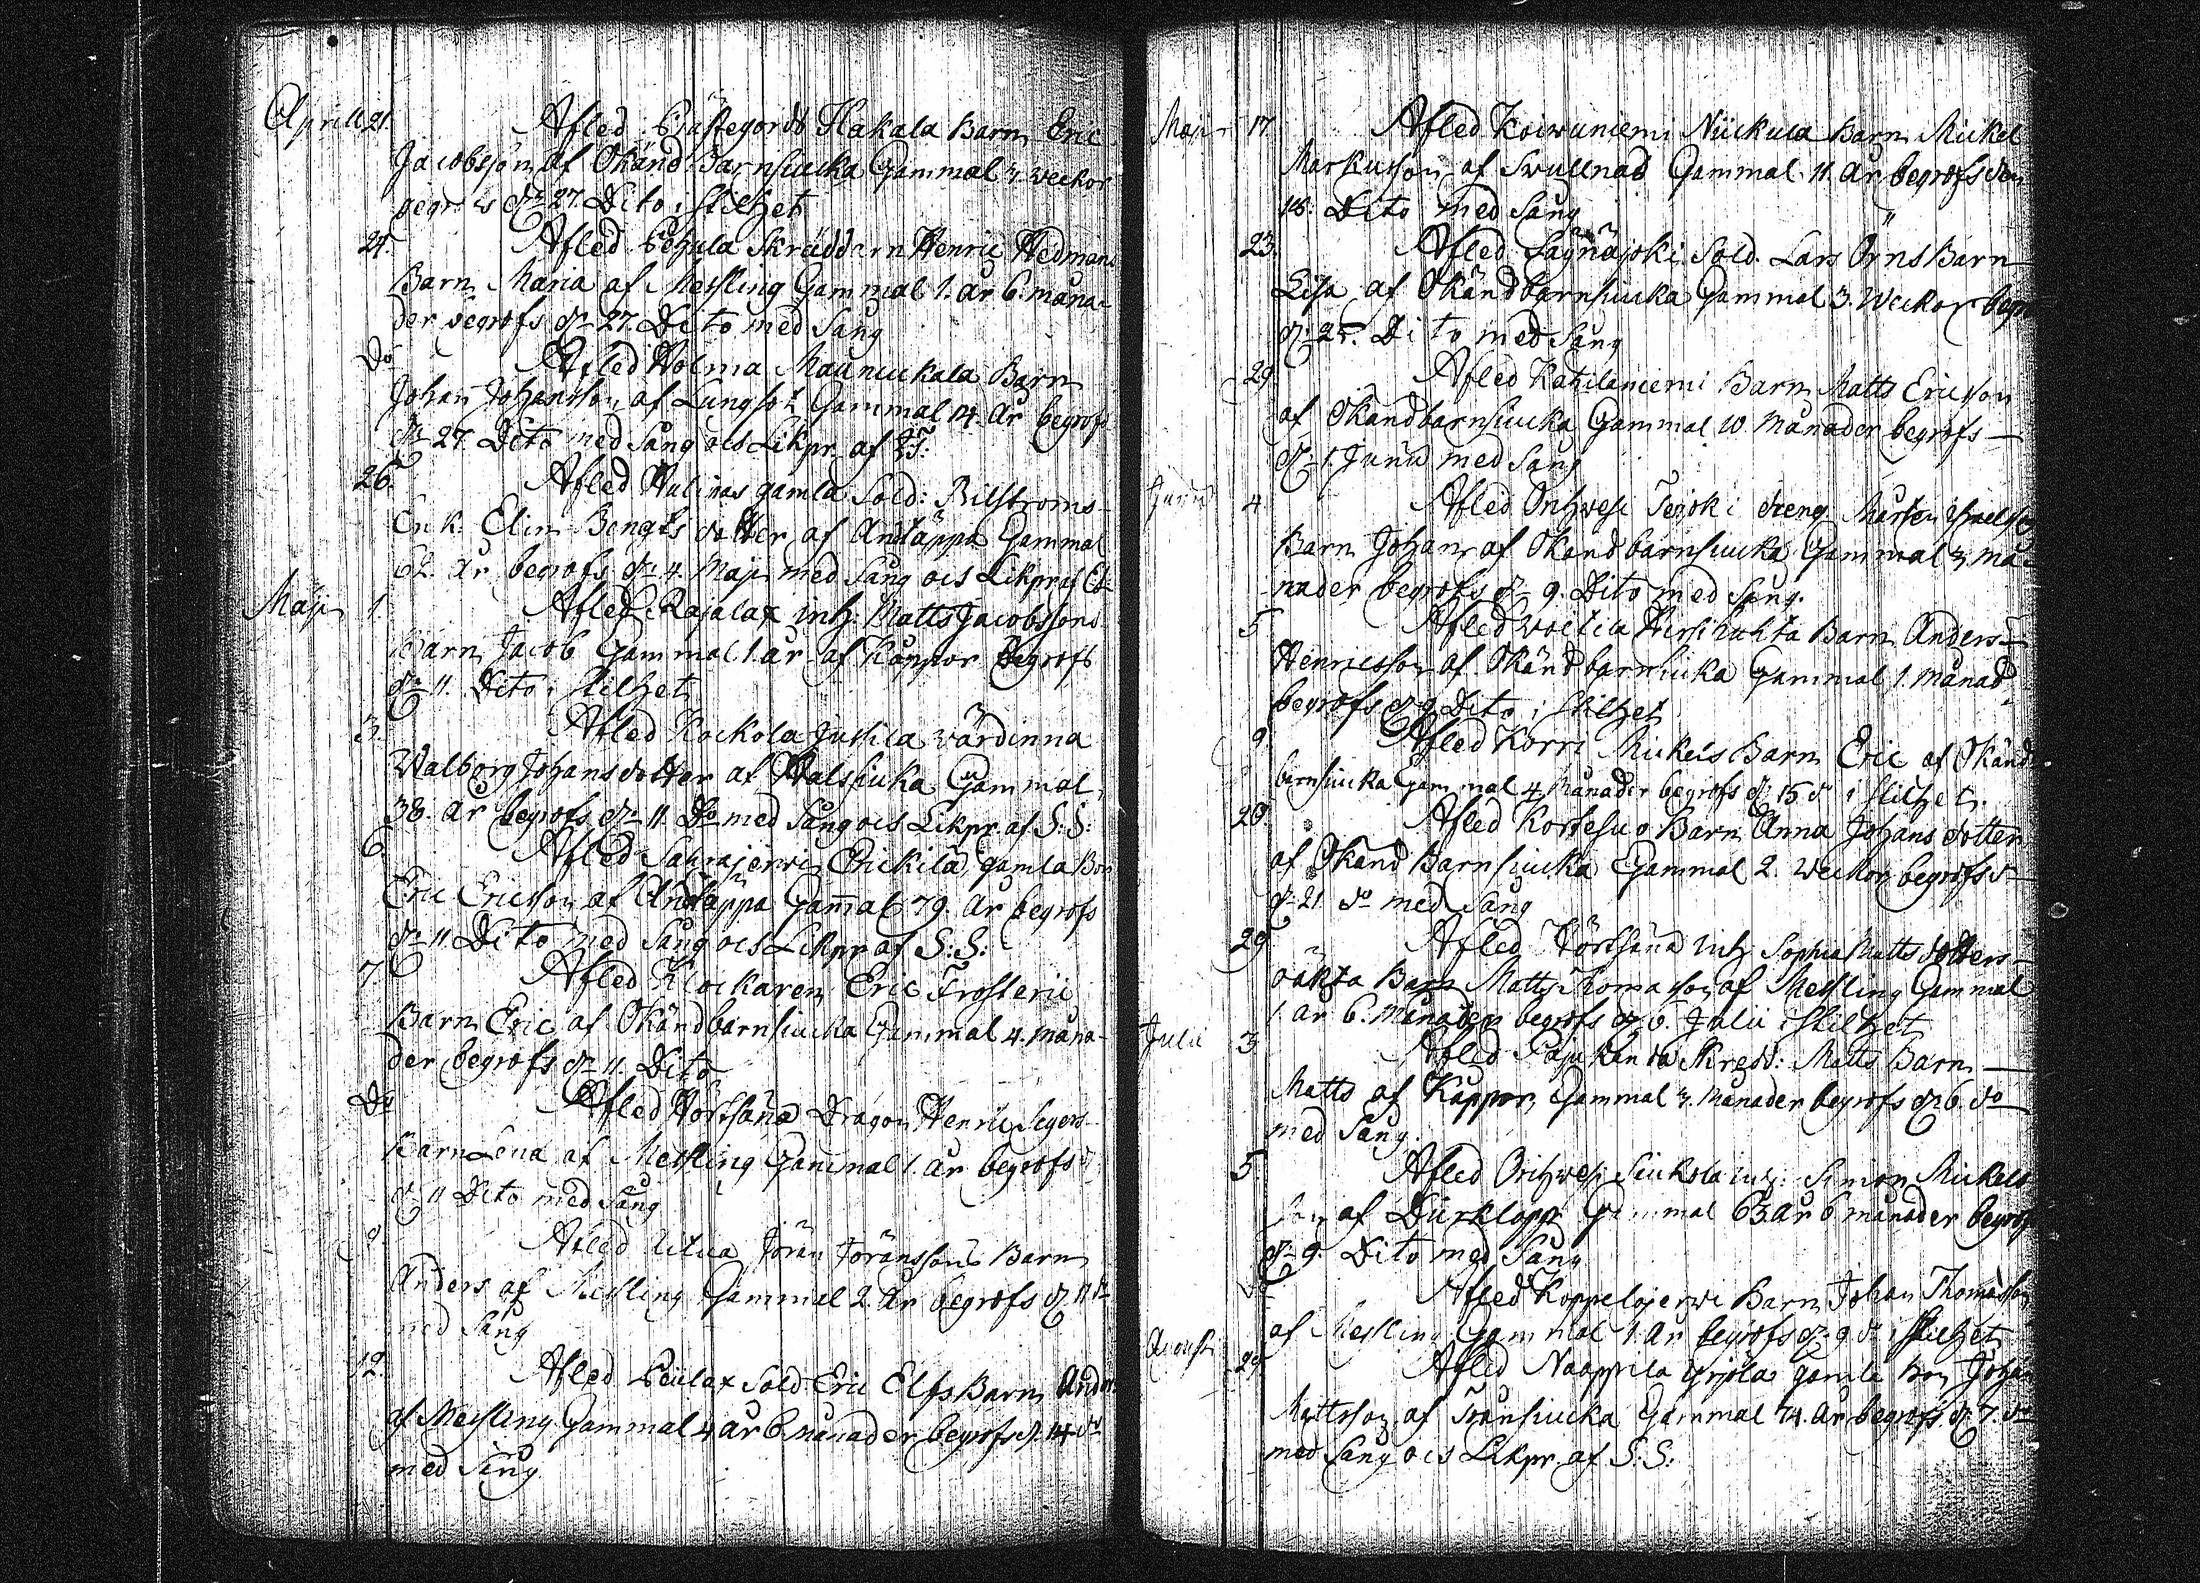 Aprill 21. Afled Prästegårds Hakala Barn Eric
Jacobsson af Okänd Barnsiucka Gammal 3. weckor
begrofs dn 27. Dito i stilhet
24. Afled Pehula Skräddarn Henric Hedmans
Barn Maria af Messling Gammal 1. år 6. måna-
der begrofs dn 27. Dito med Sång
Do Afled Holma Mauniukala Barn
Johan Johansson af Lungsot Gammal 14. år begrofs
dn 27. Dito med Sång och Likpr. af
26. Afled Hulinas gamla Sold: Bilströms
Enk. Elin Bengtsdotter af Andtäppa Gammal
62. år begrofs dn 4. Maji med Sång och Likpr. af
Maji 1. Afled Rajalax inh: Matts Jacobssons
Barn Jacob Gammal 1. år af Kåppor Begrofs
dn 11. Dito i stilhet
3. Afled Kockola Jussila värdinna
Walborg Johansdotter af Halssiuka Gammal
38. år begrofs dn 11. Do med Sång och Likpr. af S: S:
6. Afled Saarajerwi Erickilä gamla Bon
Eric Ericsson af Andtäppa Gamal 79. år begrofs
dn 11 Dito med Sång och Likpr af S: S:
7. Afled Klockaren Eric Frosterii
Barn Eric af Okänd barnsiucka Gammal 4. måna-
der begrofs dn 11. Dito
Do Afled Hörtsänä Dragon Henric Segers
Barn Lena af Messling Gammal 1. år begrofs
d 11 Dito med Sång
Afled Uhua Jöran Jöranssons Barn
Anders af Messling Gammal 2. år begrofs d 11 do
med Sång
12. Afled Peulax Sold Eric Elfs Barn Anders
af Messling Gammal 4 år 6 månader begrofs d. 14 do
med Sång
Maji 17 Afled Koiwuniemi Niickula Barn Mickel
Markusson af Swullnad Gammal 11. år begrofs den
18. Dito med Sång
23. Afled Lagnäjoki Sold. Lars Örns Barn
Lisa af Okänd barnsiucka Gammal 3. weckor begro
d 25. Dito med Sång
29 Afled Kahilaniemi Barn Matts Ericsson
af Okänd barnsiucka Gammal 10 månader begrofs
d 1. Junii med Sång
Junii 4 Afled Orihwesi Teijoki dreng Mårten
Barn Johan af Okänd barnsiucka Gammal 3. må-
nader begrofs d 9. Dito med Sång.
5 Afled Woitila Hirsikuhta Barn Anders
Henricsson af Okänd barnsiucka Gammal 1. månad
begrofs d 9 Dito i stilhet
9 Afled Korri Mickels Barn Eric af Okänd
barnsiucka Gammal 4 månader begrofs d 15 do i stilhet.
20. Afled Kortesuo Barn Anna Johans dotter
af Okänd Barnsiucka Gammal 2. weckor begrofs
d 21. do med Sång
29 Afled Hörtsänä inh Sophia Matts dotters
oäkta Barn Matts Thomasson af Messling Gammal
1. år 6. Månader begrofs d 6. Julii i stilhet
Julii 3 Afled Pajukanda Skredd: Matts Barn
Matts af Kåppor Gammal 3. månader begrofs d 6. do
med Sång.
5 Afled Orihwesi Siukola inh: Simon Mickels
son af Durklopp Gammal 63 år 6 månader begrofs
d 9. Dito med Sång
do Afled Koppelojerwi Barn Johan Thomasson
af Messling Gammal 1. år begrofs d 9 do i stilhet
Augusti 29. Afled Naappila Yrjola gamle bon Johan
Mattsson af Tränsiucka Gammal 74. år begrofs d 7. do
med Sång och Likpr. af S: S: